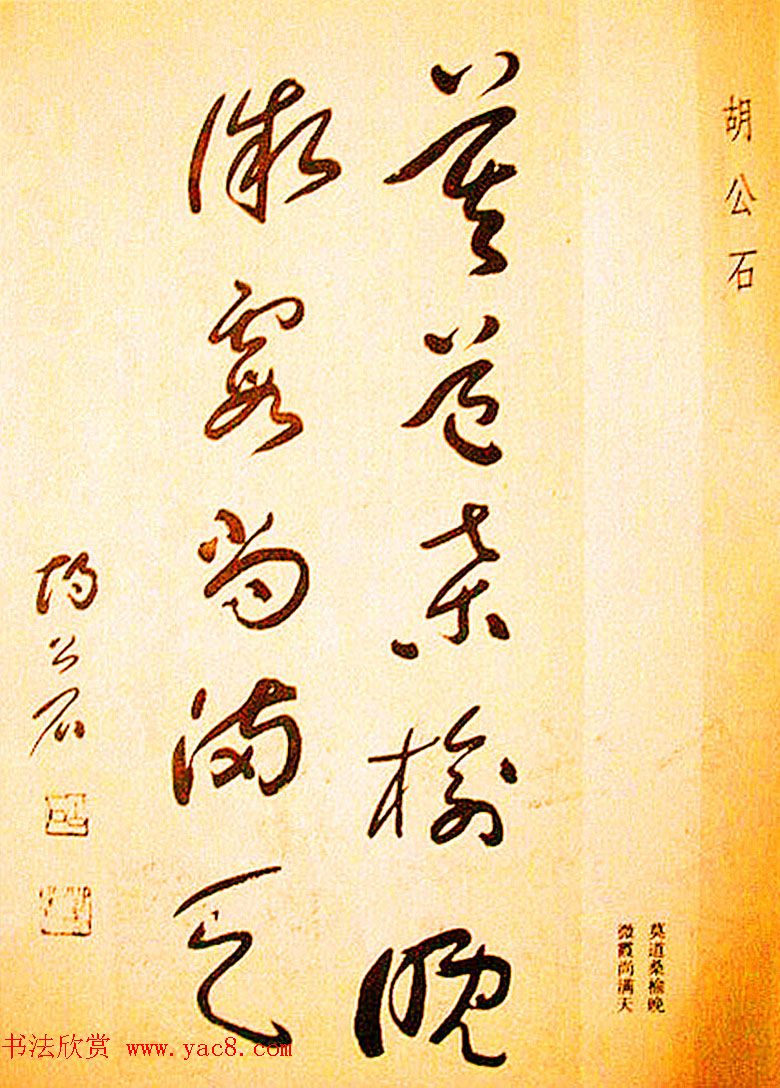 胡公石
莫道桑榆晚
微霞尚满天
胡公石
莫道桑榆晚
微霞尚满天
书法欣赏 www.yac8.com